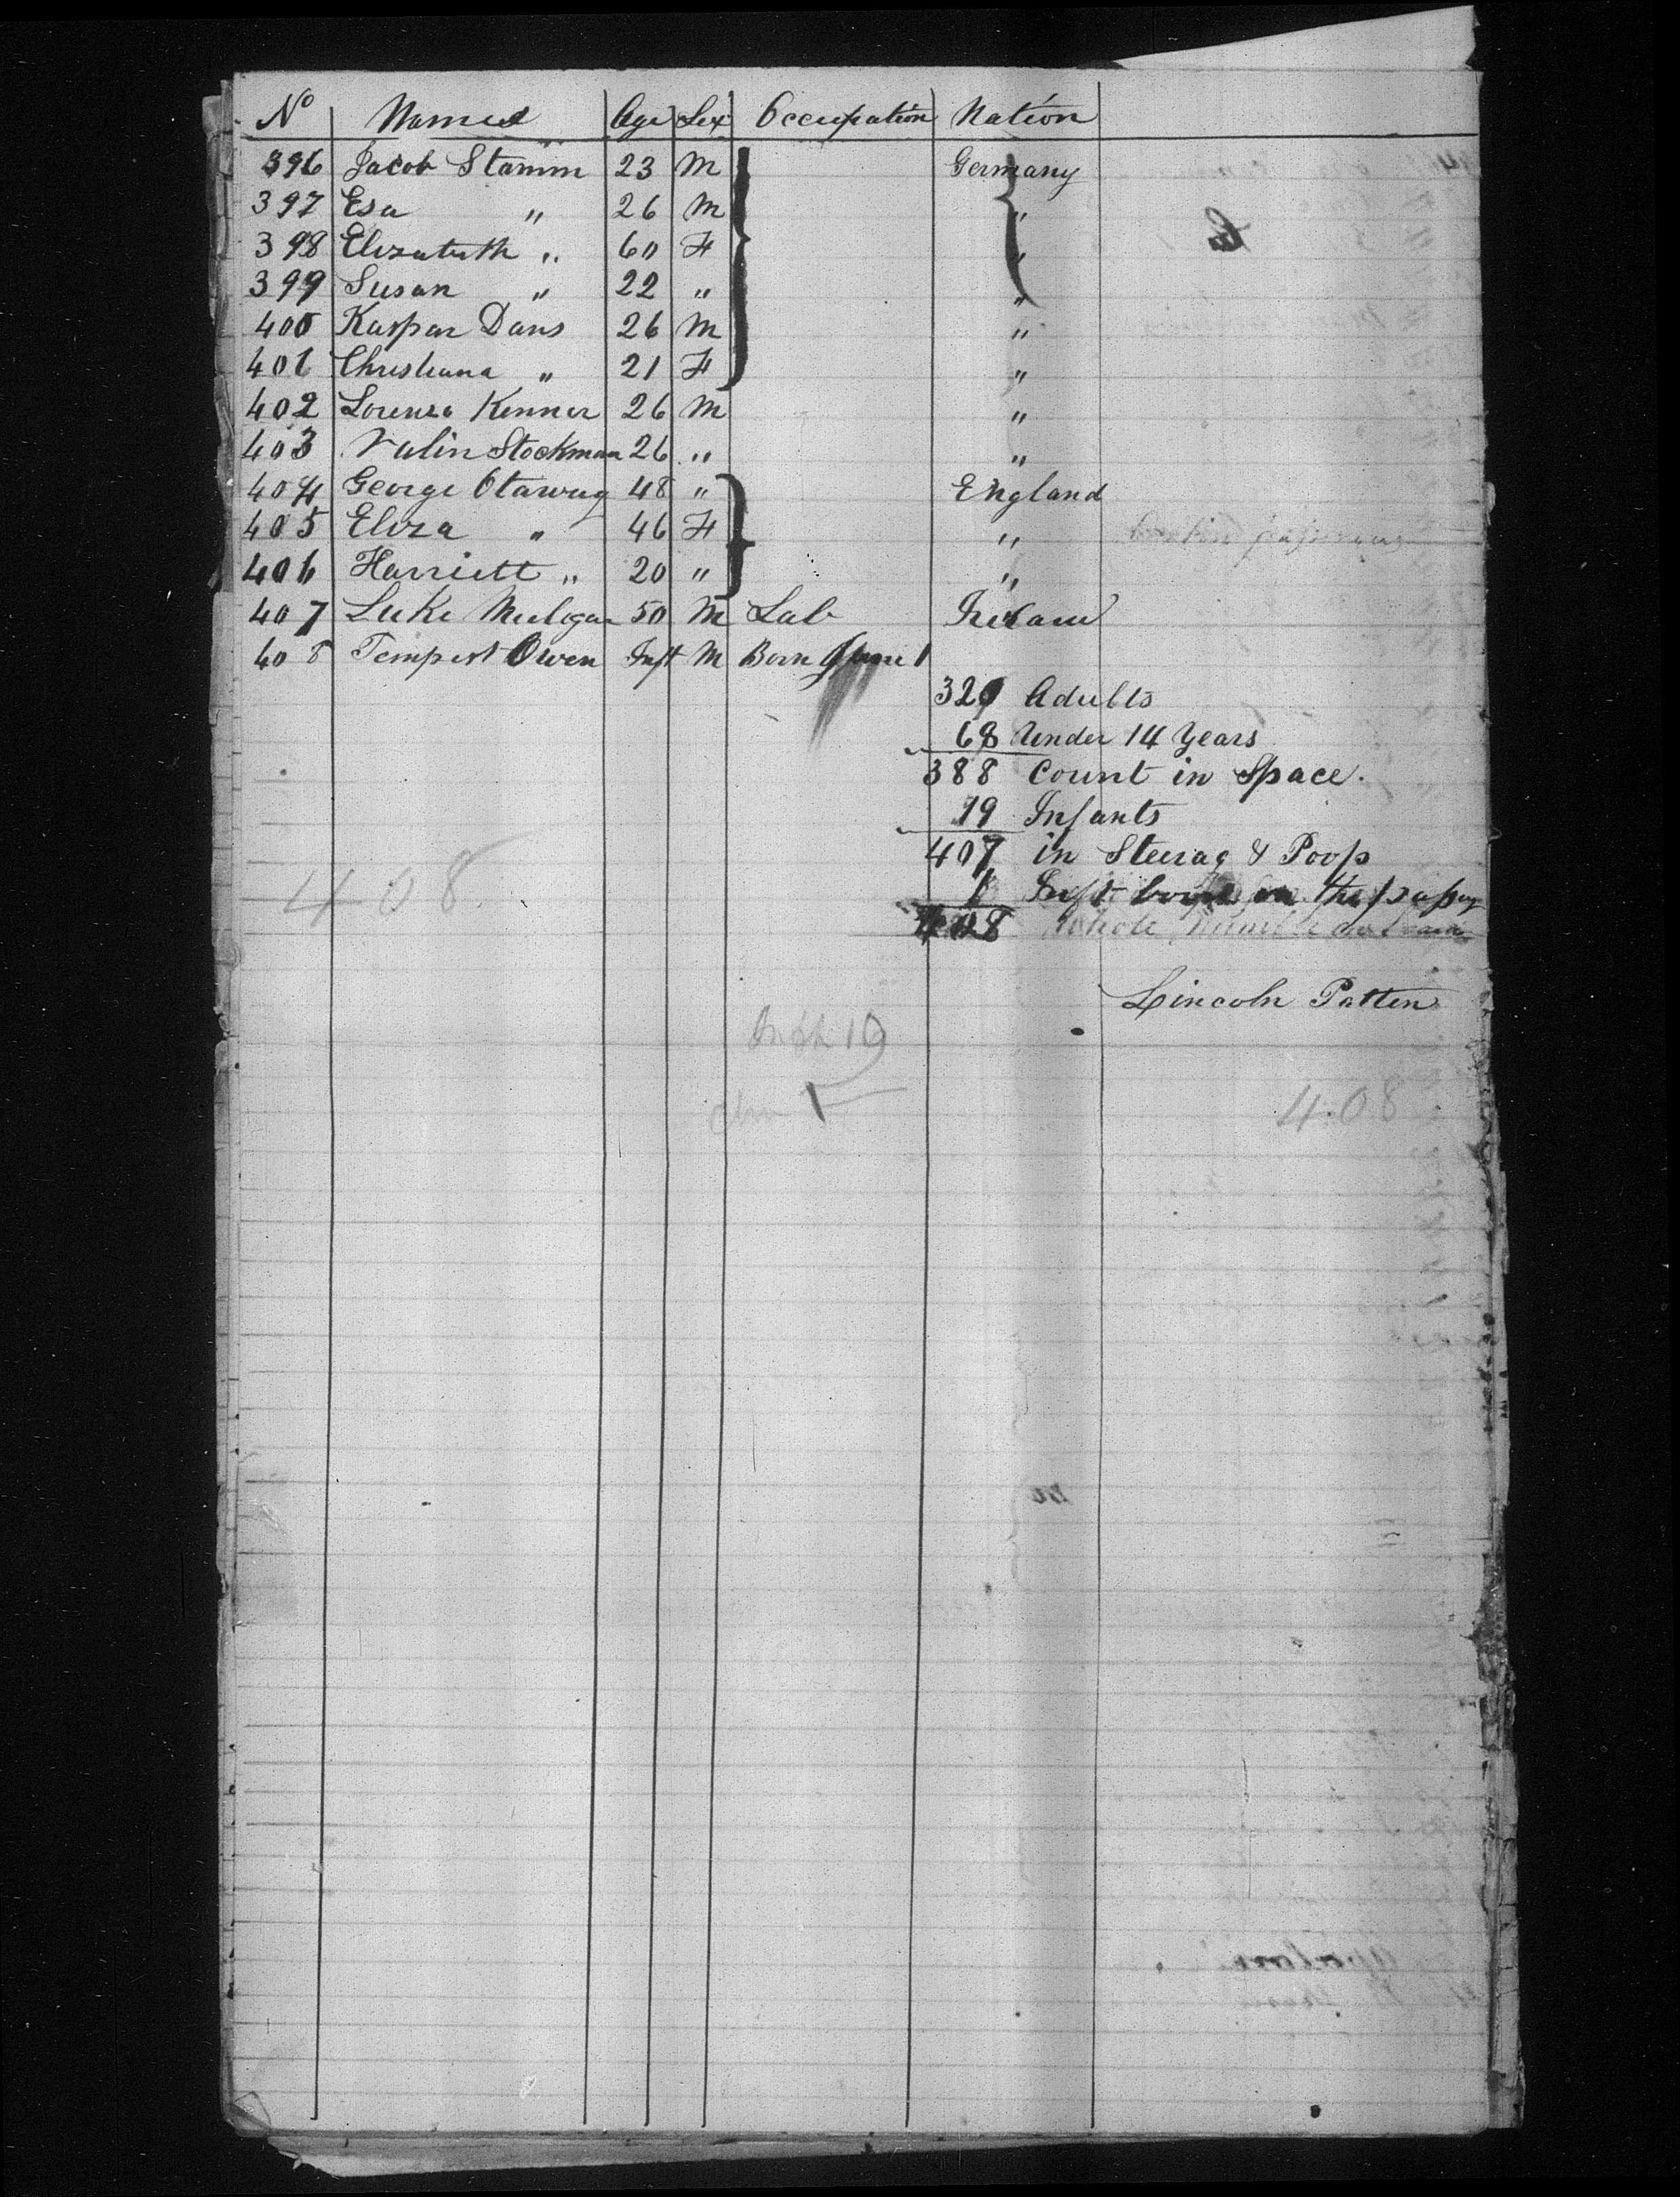 No Names Age Sex Occupation Nation
396 Jacob Stamm 23 M Germany
397 Esa " 26 M "
398 Elizabeth " 60 F "
399 Susan " 22 " "
400 Kaspar Dans 26 M "
401 Christiana " 21 F "
402 Lorenzo Kenner 26 M "
403 Valin Stockman 26 " "
404 George Otaway 48 " England
405 Eliza " 46 F "
406 Harriett " 20 " "
407 Luke Mulogan 50 M Lab Ireland
408 Tempest Owen Inft M Born June 1
320 Adults
68 Under 14 Years
388 Count in Space.
19 Infants
407 in Steerag & Poop
1 Inft born on the passag
408 Whole Number on board
408
Lincoln Patten
19
1
408